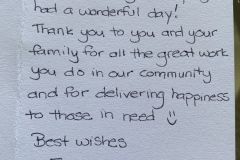 had a wonderful day!
Thank you to you and your
family for all the great work
you do in our community
and for delivering happiness
to those in need
Best wishes